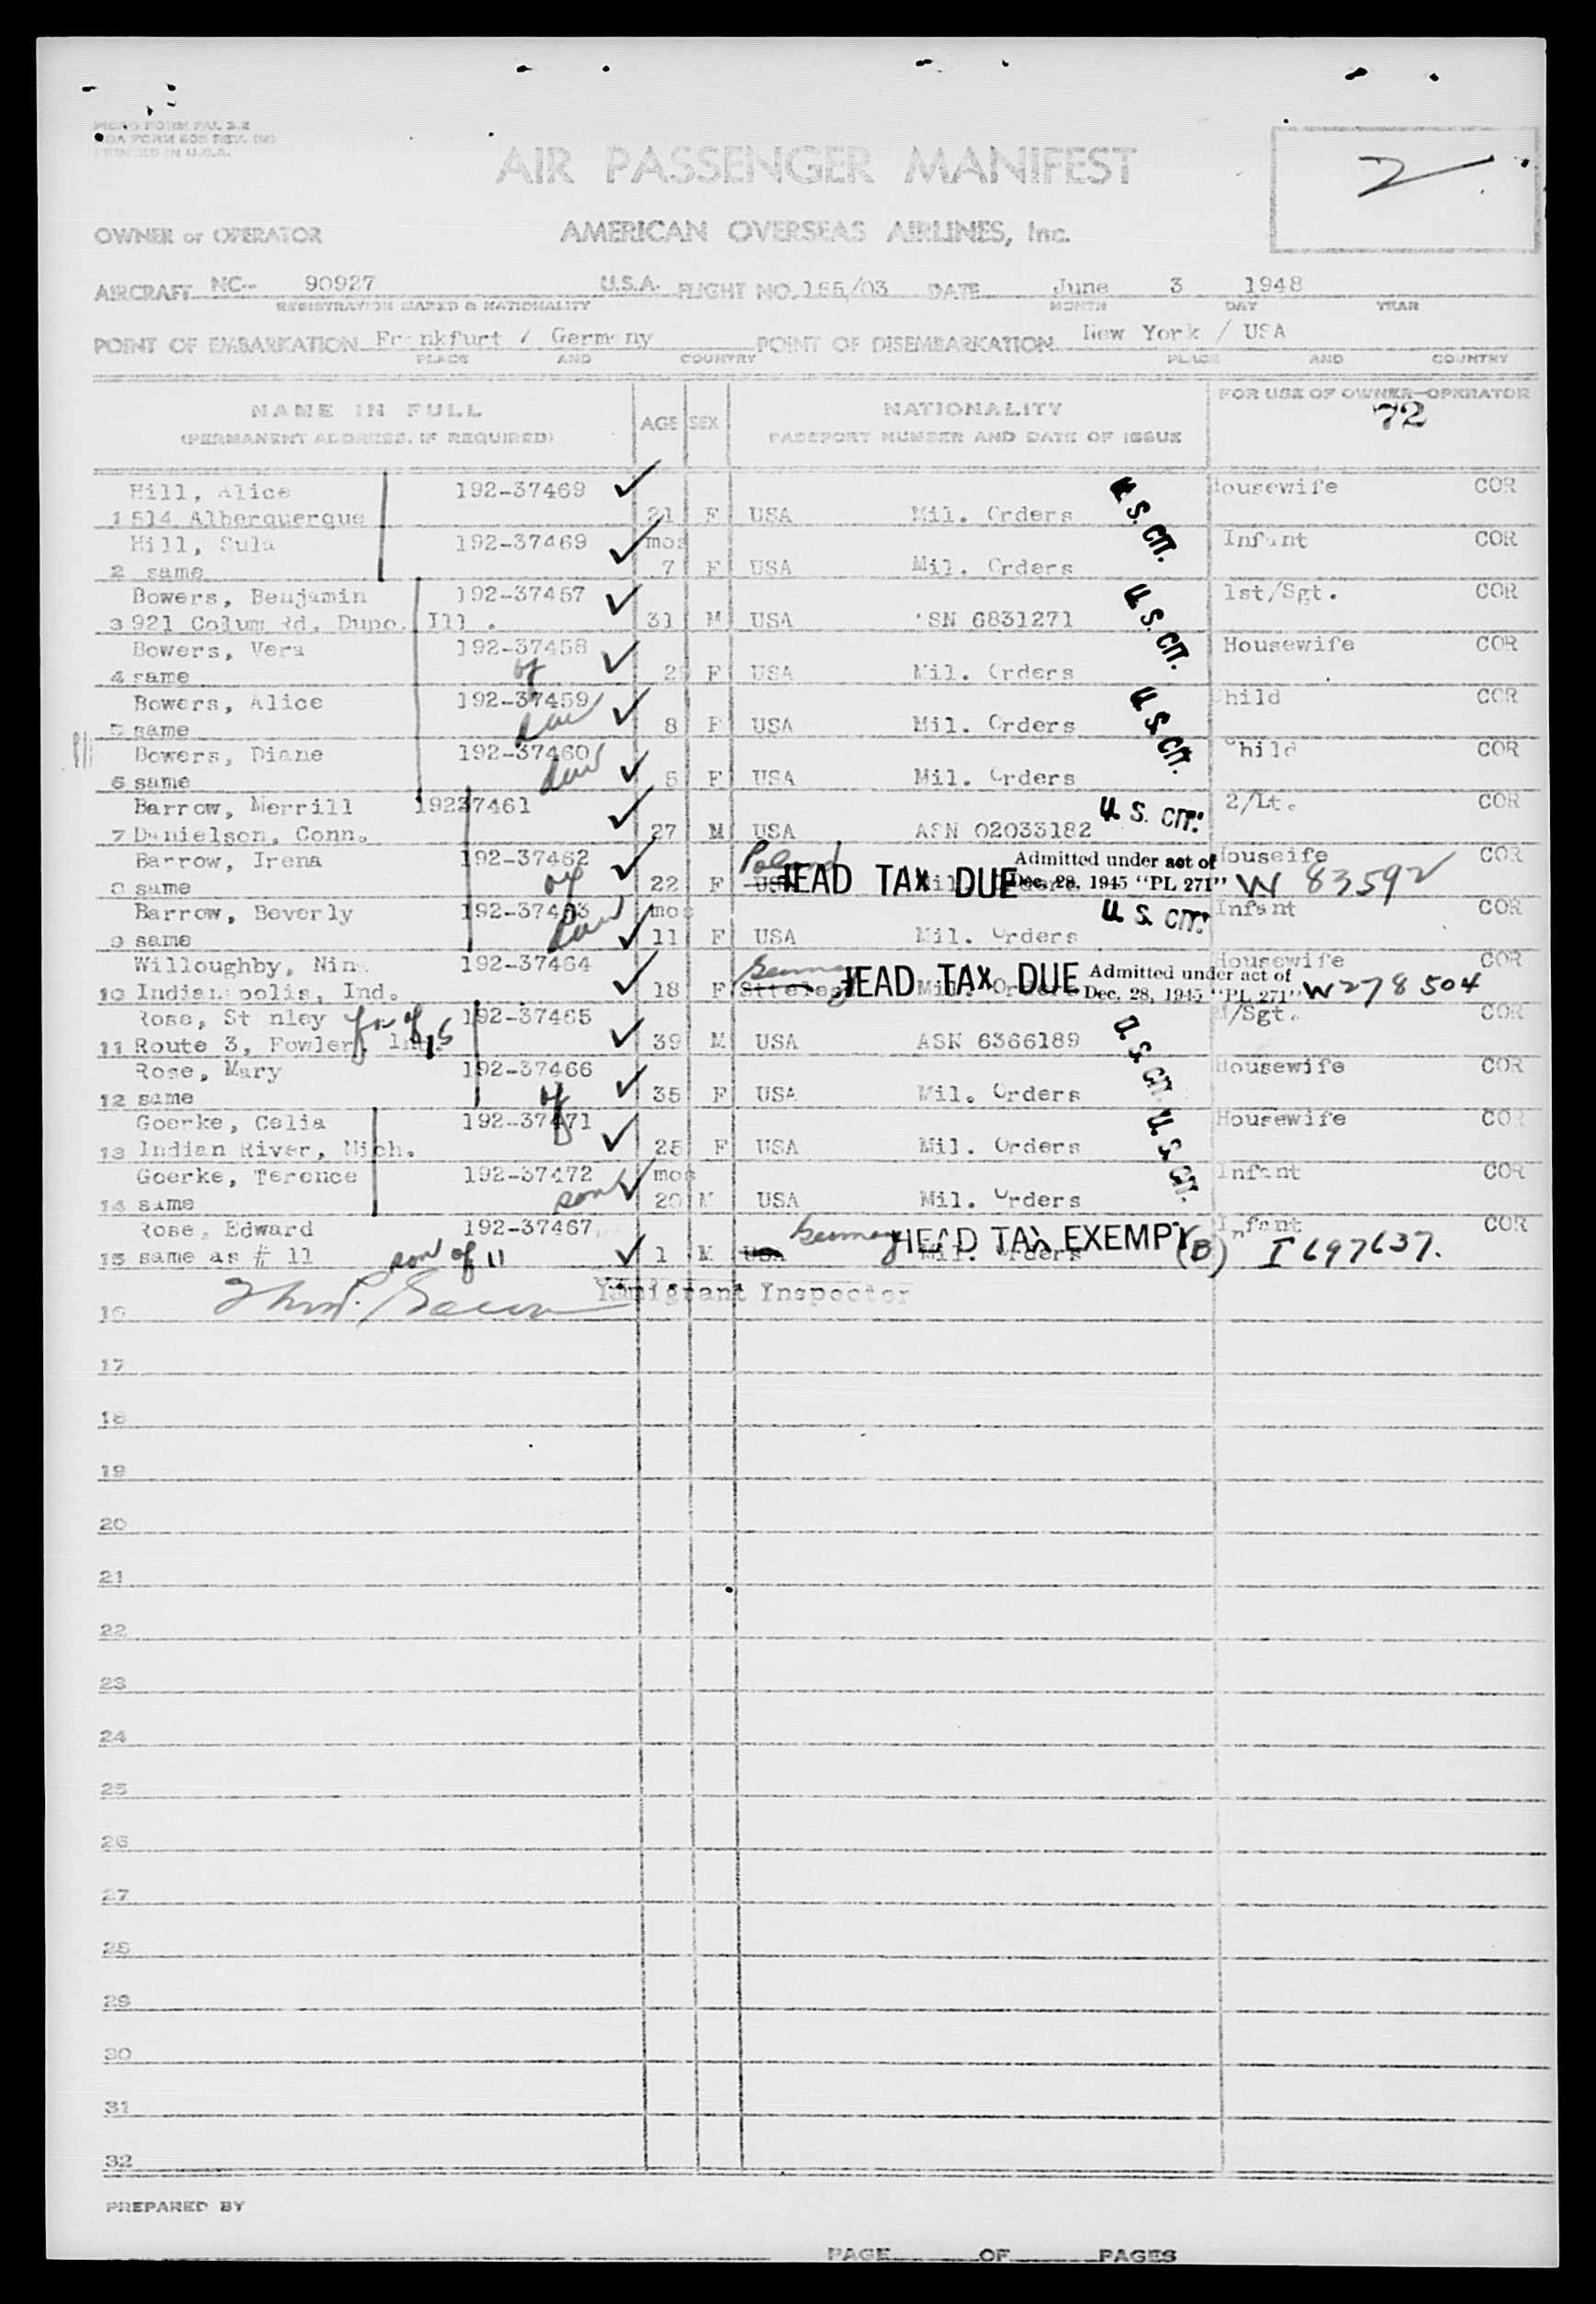 MICRO FORM PAL 2-2
AOA FORM 605 REV.
PRINTED IN U.S.A.
AIR PASSENGER MANIFEST
2
OWNER or OPERATOR AMERICAN OVERSEAS AIRLINES, Inc.
AIRCRAFT NC-- 90927 U.S.A. FLIGHT NO. 155/03 DATE June 3 1948
REGISTRATION MARKS & NATIONALITY MONTH DAY YEAR
POINT OF EMBARKATION Frankfurt / Germany POINT OF DISEMBARKATION New York / USA
PLACE AND COUNTRY PLACE AND COUNTRY
NAME IN FULL AGE SEX NATIONALITY FOR USE OF OWNER-OPERATOR
(PERMANENT ADDRESS, IF REQUIRED) PASSPORT NUMBER AND DATE OF ISSUE 72
Hill, Alice 192-37469 ✓ Housewife COR
1 514 Alberquerque 21 F USA Mil. Orders U.S. CIT.
Hill, Sula 192-37469 ✓ mos Infant COR
2 same 7 F USA Mil. Orders
Bowers, Benjamin 192-37457 ✓ 1st/Sgt. COR
3 921 Colum Rd. Dupo. Ill. 31 M USA ASN 6831271 U.S. CIT.
Bowers, Vera 192-37458 ✓ Housewife COR
4 same of F USA Mil. Orders
Bowers, Alice 192-37459 ✓ Child COR
5 same dau 8 F USA Mil. Orders U.S. CIT.
Bowers, Diane 192-37460 ✓ Child COR
6 same dau 5 F USA Mil. Orders
Barrow, Merrill 19237461 ✓ 2/Lt. COR
7 Danielson, Conn. 27 M USA ASN 02033182 U.S. CIT.
Barrow, Irena 192-37462 ✓ Poland Admitted under act of Houseife COR
8 same of 22 F USA HEAD TAX DUE Dec. 28, 1945 "PL 271" W 83592
Barrow, Beverly 192-37463 ✓ mos U.S. CIT. Infant COR
9 same dau 11 F USA Mil. Orders
Willoughby, Nina 192-37464 ✓ Germany Admitted under act of Housewife COR
10 Indianapolis, Ind. 18 F HEAD TAX DUE Mil. Orders Dec. 28, 1945 "PL 271" W278504
Rose, Stanley fa of 15 192-37465 ✓ M/Sgt. COR
11 Route 3, Fowler, Ind. 39 M USA ASN 6366189 U.S. CIT.
Rose, Mary 192-37466 ✓ Housewife COR
12 same of 35 F USA Mil. Orders
Goerke, Celia 192-37471 ✓ Housewife COR
13 Indian River, Mich. 25 F USA Mil. Orders U.S. CIT.
Goerke, Terence 192-37472 ✓ mos Infant COR
14 same son 20 M USA Mil. Orders
Rose, Edward 192-37467 Germany HEAD TAX EXEMPT Infant COR
15 same as # 11 son of 11 ✓ 1 M USA Mil. Orders (B) I 697637.
16 Immigrant Inspector
17
18
19
20
21
22
23
24
25
26
27
28
29
30
31
32
PREPARED BY
PAGE OF PAGES